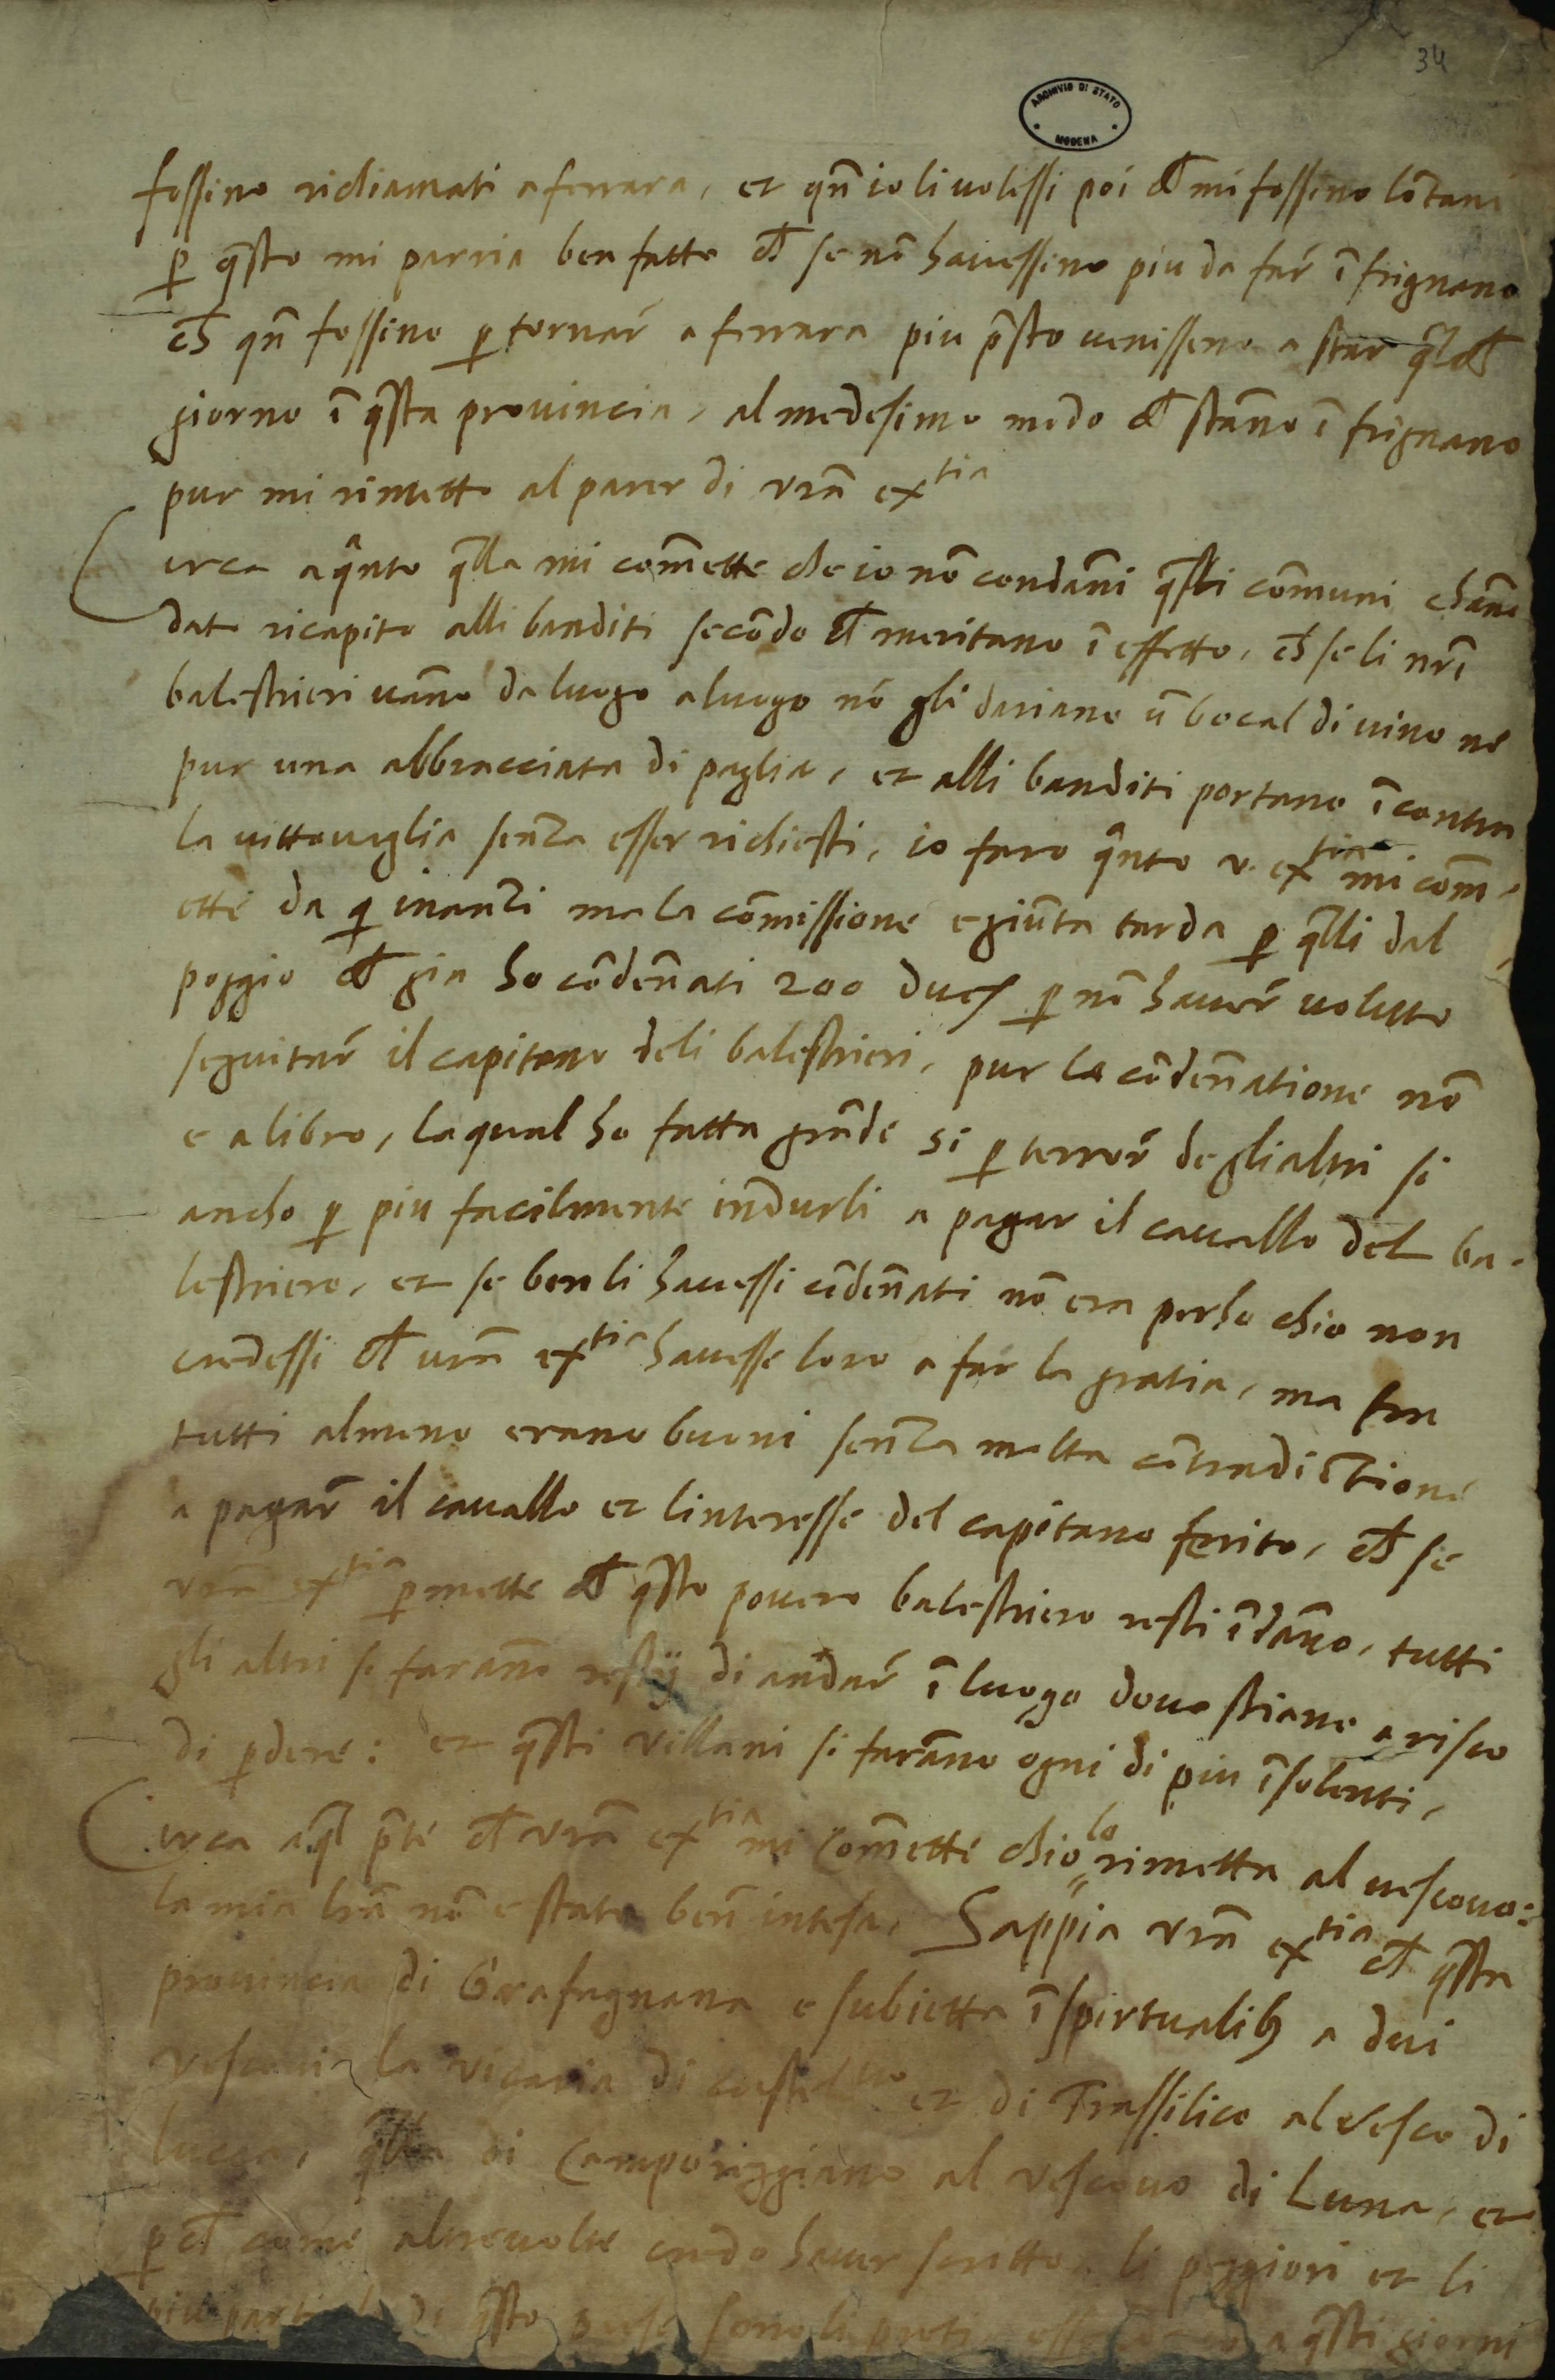 34
ARCHIVIO DI STATO
MODENA
fossino richiamati a ferrara, et qn̄ io li volessi poi ch̄ mi fossino lōtani
ꝑ q̄sto mi parria ben fatto ch̄ se nō havessino piu da far̄ ī frignano
ch̄ qn̄ fossino ꝑ tornar̄ a ferrara piu p̄sto venisseno a star q̄lch̄
giorno ī q̄sta provincia, al medesimo modo ch̄ stāno ī frignano
pur mi rimetto al parer di vrā ex^tia
Circa a q̄nto q̄lla mi com̄ette che io nō condan̄i q̄sti com̄uni chan̄o
dato ricapito alli banditi secōdo ch̄ meritano ī effetto, ch̄ se li nrī
balestrieri van̄o da luogo a luogo nō gli dariano ū bocal di vino ne
pur una abbracciata di paglia, et alli banditi portano īcontra
la vittovaglia senza esser richiesti, io faro q̄nto v. ex^tia mi com̄
ette da q inanzi ma la com̄issione e giūta tarda ꝑ q̄lli dal
poggio ch̄ gia ho cōden̄ati 200 duc ꝑ nō haver̄ voluto
seguitar̄ il capitano deli balestrieri, pur la cōden̄atione nō
e a libro, la qual ho fatta grāde si ꝑ terror̄ degli altri si
ancho ꝑ piu facilmente indurli a pagar il cavallo del ba
lestriero, et se ben li havessi cōden̄ati nō era perho chio non
credessi ch̄ vrā ex^tia havesse loro a far la gratia, ma fra
tutti almeno erano buoni senza molta cōtradictione
a pagar̄ il cavallo et linteresse del capitano ferito, ch̄ se
vrā ex^tia ꝑmette ch̄ q̄sto povero balestriero resti ī dan̄o, tutti
gli altri si faran̄o restij di andar̄ ī luogo dove stiano a risco
di ꝑdere: et q̄sti villani si farāno ogni di piu īsolenti,
Circa a q̄l p̄te ch̄ vrā ex^tia mi com̄ette chio lo rimetta al vescovo:
la mia lrā nō e stata ben̄ intesa, Sappia vrā ex^tia ch̄ q̄sta
provincia di Grafagnana e subietta ī spirtualibȝ a dui
vescovi la vicaria di castel^vo et di Trassilico al vesco di
lucca, q̄lla di Camporeggiano al vescovo di Luna, et
ꝑch̄ come altre volte credo haver scritto li peggiori et li
piu partiali di q̄sto paese sono li preti a q̄sti giorni